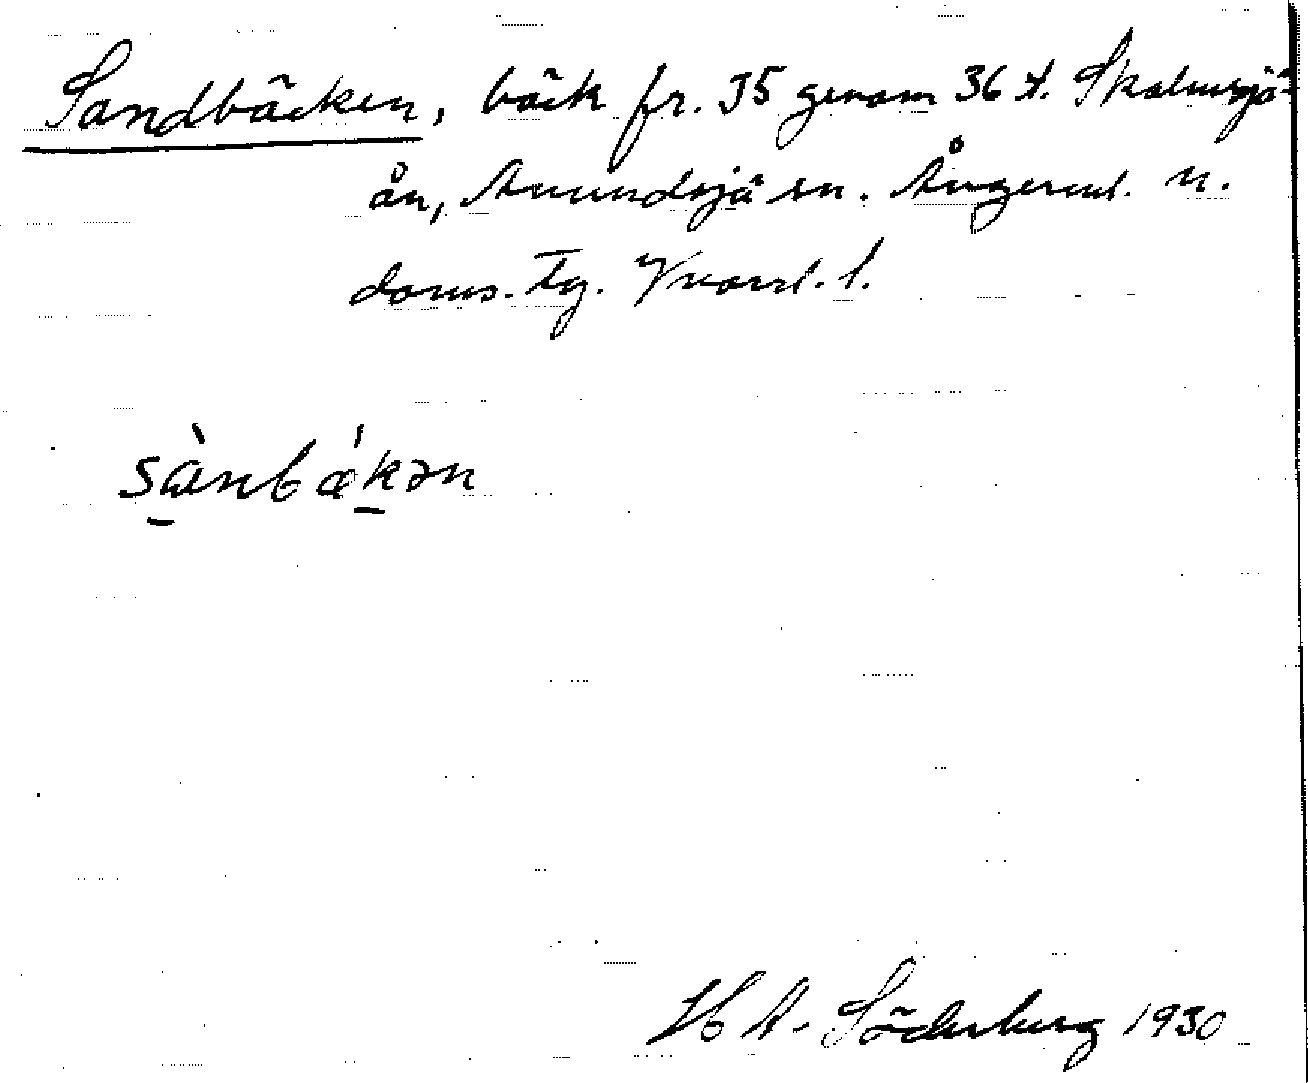 Sandbäcken, bäck fr. 35 genom 36 t. Skalmsjö-
ån, Anundsjö sn. Ångerml. n.
doms. tg. Vnorrl. l.
sànbǽkən
H A. Söderberg 1930